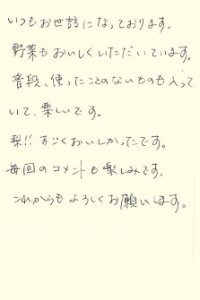 いつもお世話になっております。
野菜もおいしくいただいています。
普段、使ったことのないものも入って
いて、楽しいです。
梨!! すごくおいしかったです。
毎回のコメントも楽しみです。
これからもよろしくお願いします。